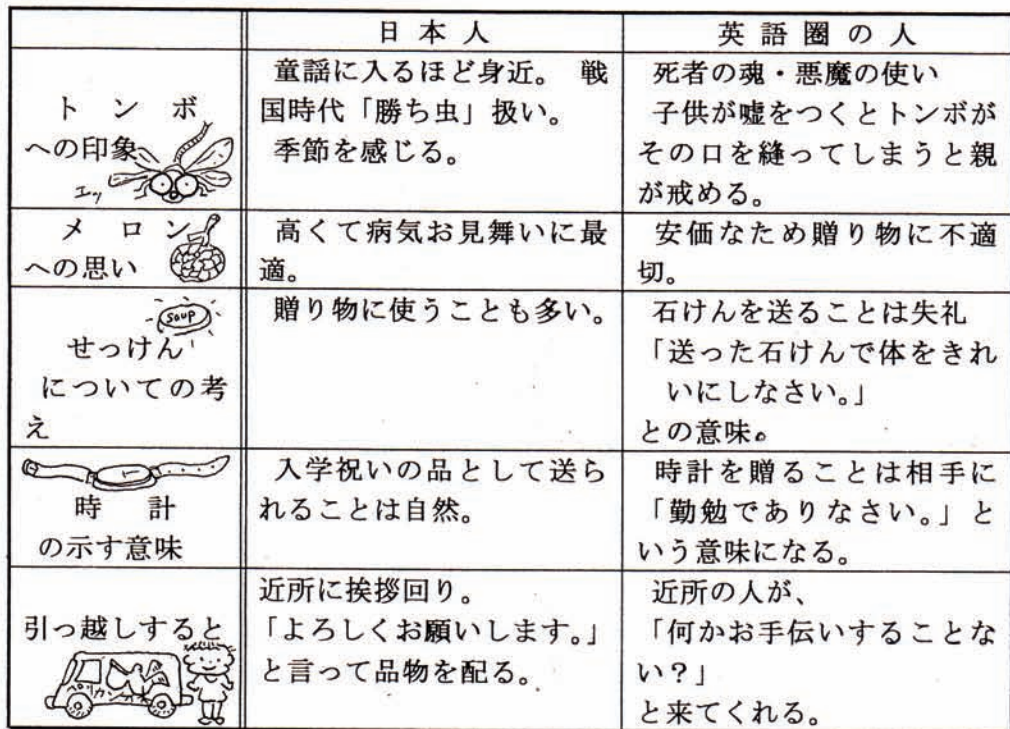 日本人
英語圏の人
トンボ
への印象
エッ
童謡に入るほど身近。 戦
国時代「勝ち虫」扱い。
季節を感じる。
死者の魂・悪魔の使い
子供が嘘をつくとトンボが
その口を縫ってしまうと親
が戒める。
メロン
への思い
高くて病気お見舞いに最
適。
安価なため贈り物に不適
切。
soup
せっけん
についての考
え
贈り物に使うことも多い。
石けんを送ることは失礼
「送った石けんで体をきれ
いにしなさい。」
との意味。
時計
の示す意味
入学祝いの品として送ら
れることは自然。
時計を贈ることは相手に
「勤勉でありなさい。」と
いう意味になる。
引っ越しすると
ペリカン
近所に挨拶回り。
「よろしくお願いします。」
と言って品物を配る。
近所の人が、
「何かお手伝いすることな
い？」
と来てくれる。